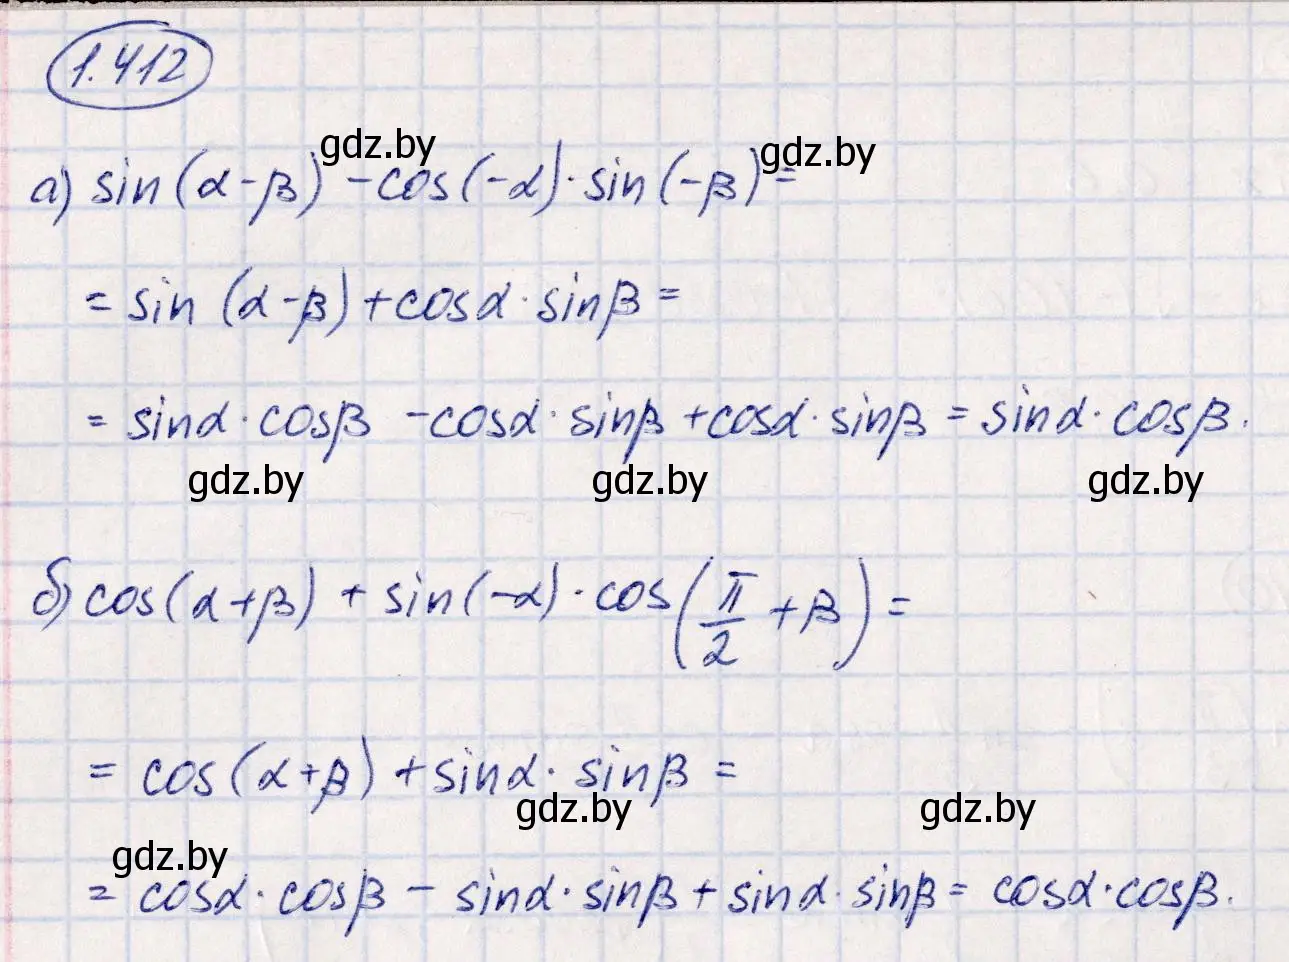 1.412
gdz.by
gdz.by
а) sin(α-β) -cos(-α)·sin(-β)=
= sin (α-β)+cosα·sinβ =
= sinα·cosβ -cosα·sinβ +cosα·sinβ = sinα·cosβ.
gdz.by
gdz.by
gdz.by
б) cos(α+β) + sin(-α)·cos(π/2 +β)=
= cos(α+β) +sinα·sinβ =
gdz.by
gdz.by
gdz.by
= cosα·cosβ - sinα·sinβ + sinα·sinβ = cosα·cosβ.